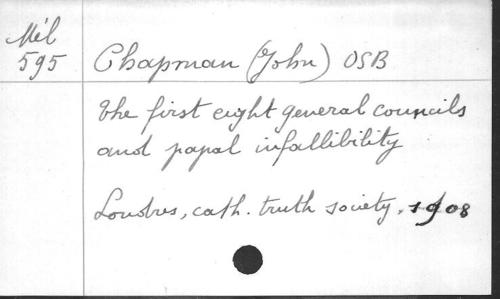 Mél
595
Chapman (John) OSB
the first eight general councils
and papal infallibility
Londres, cath. truth society, 1908